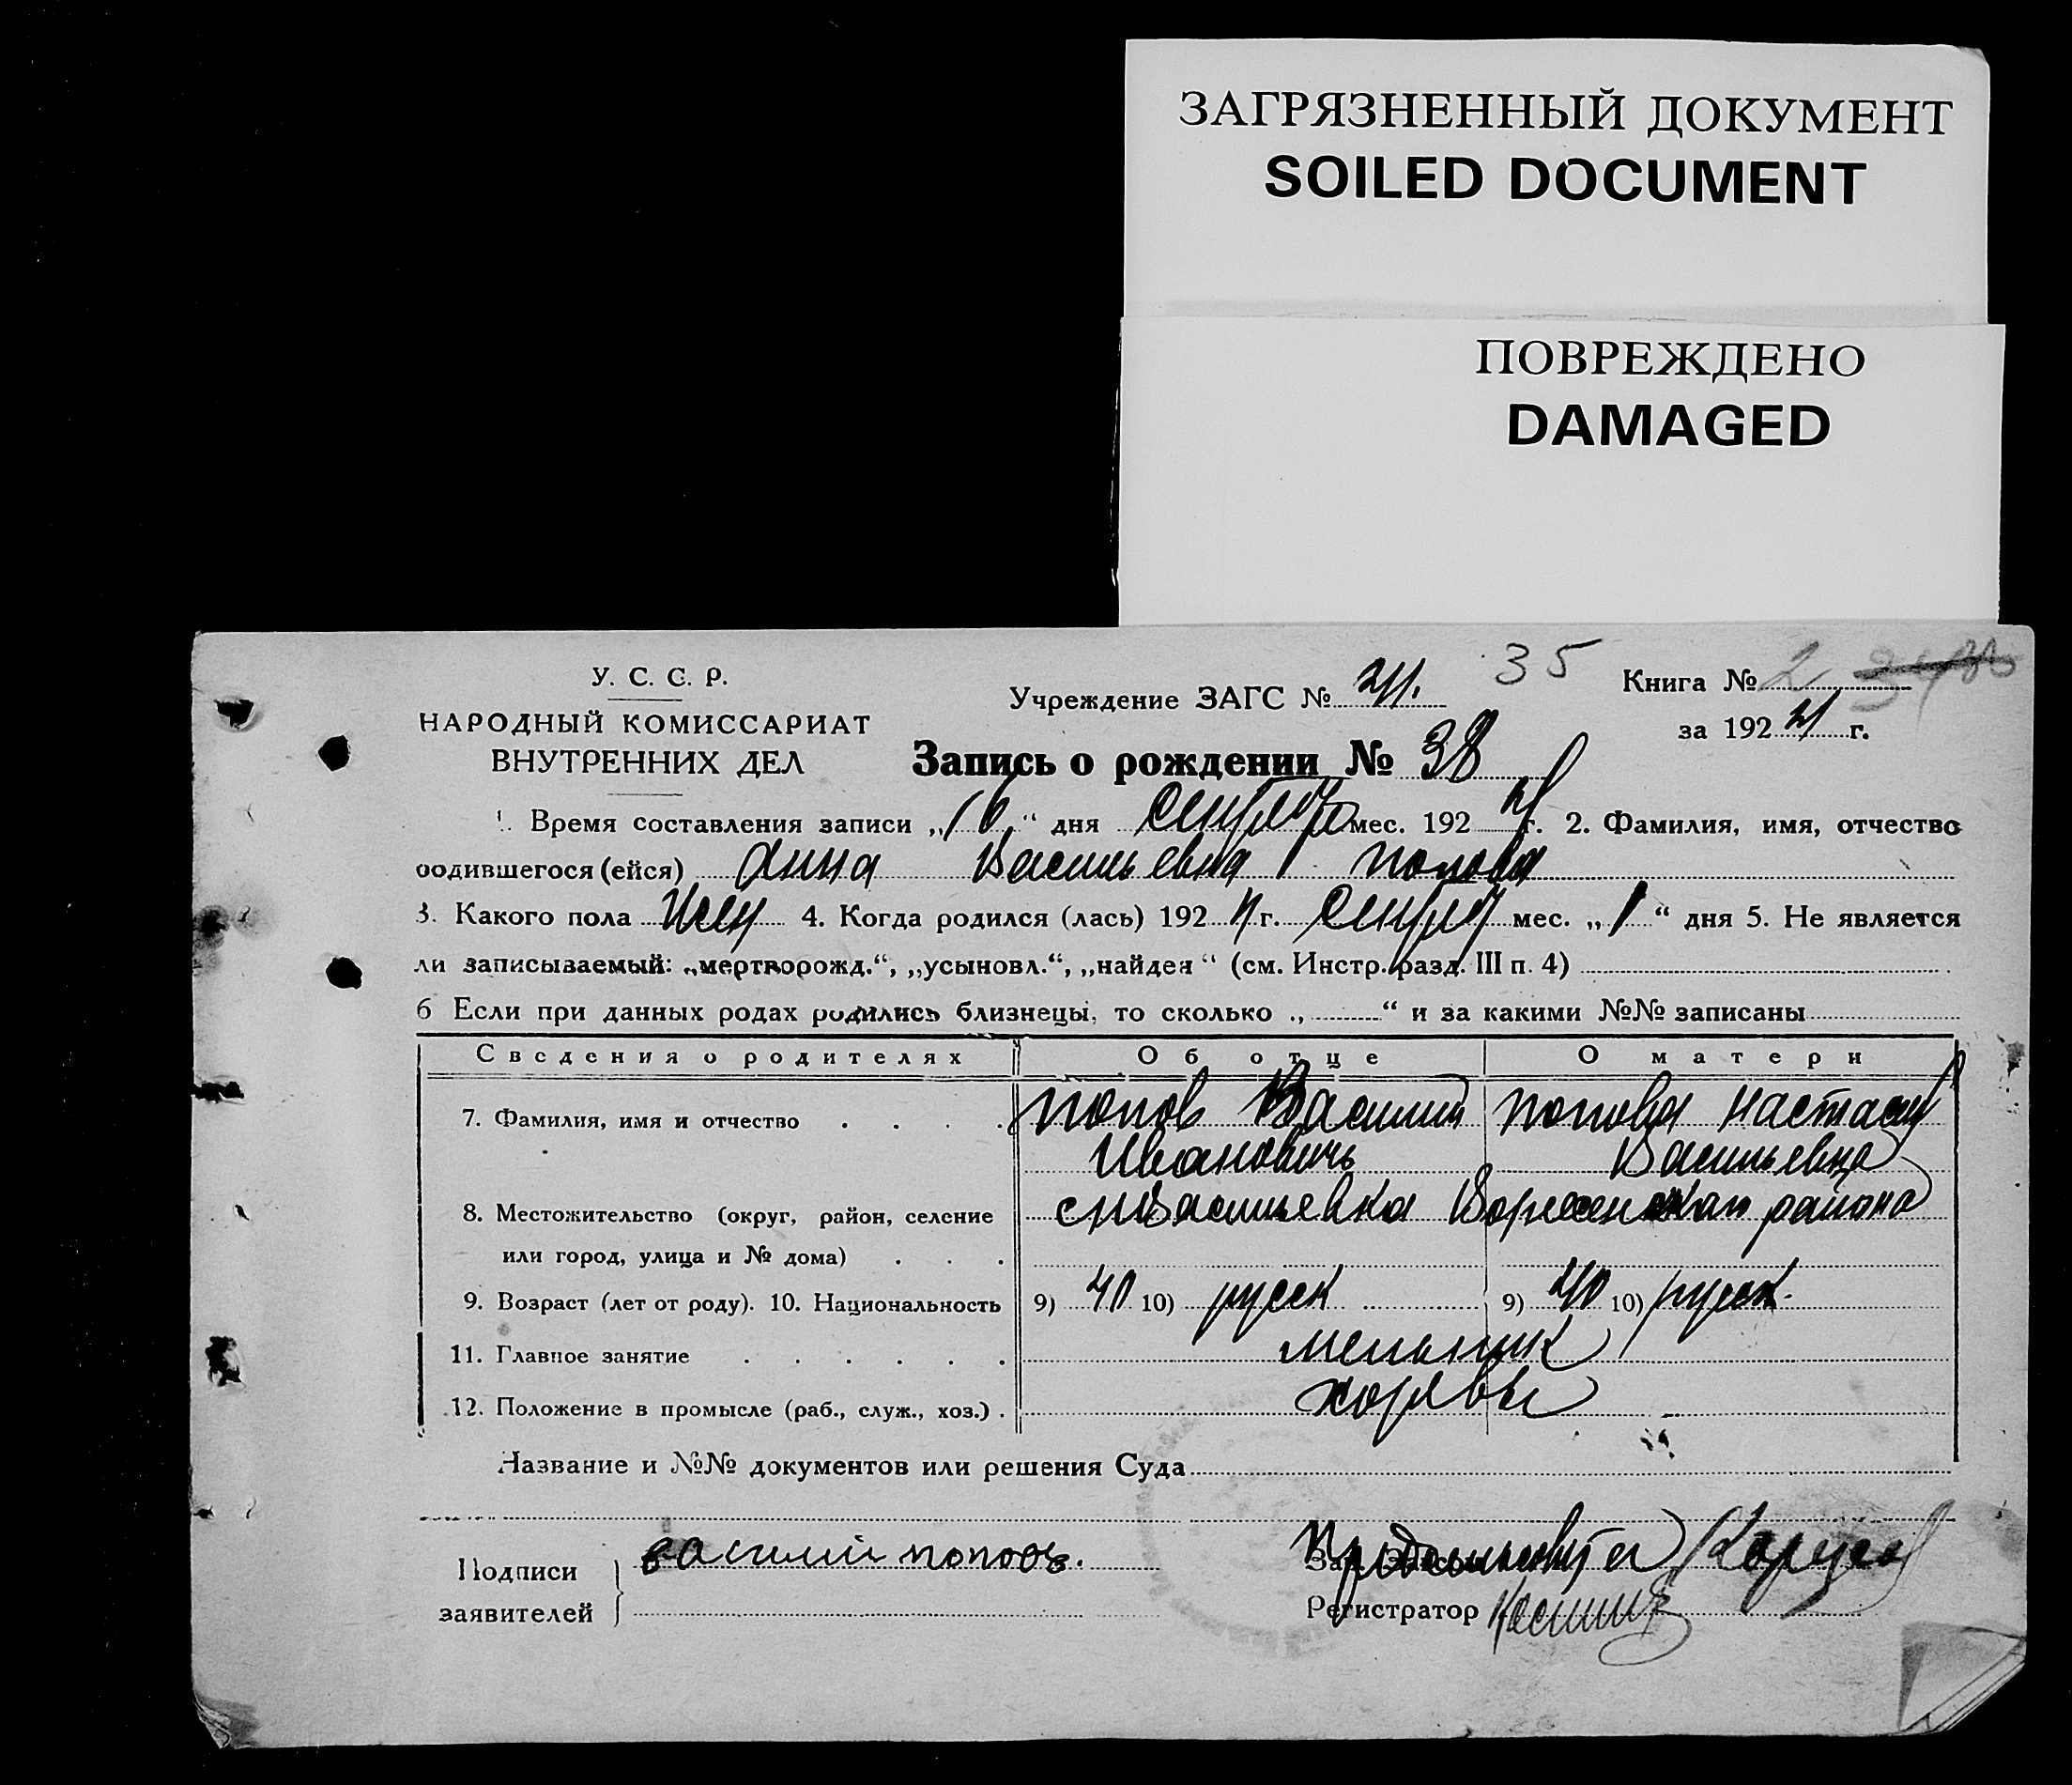 ЗАГРЯЗНЕННЫЙ ДОКУМЕНТ
SOILED DOCUMENT
ПОВРЕЖДЕНО
DAMAGED
У. С. С. Р.
НАРОДНЫЙ КОМИССАРИАТ
ВНУТРЕННИХ ДЕЛ
Учреждение ЗАГС №
35
Книга № 2
за 192 4 г.
Запись о рождении № 38
1. Время составления записи „16“ дня мес. 192 4 г. 2. Фамилия, имя, отчество
родившегося (ейся) Анна Васильевна Попова
3. Какого пола жен 4. Когда родился (лась) 192 4 г. мес. „1“ дня 5. Не является
ли записываемый: „мертворожд.“, „усыновл.“, „найден“ (см. Инстр. разд. III п. 4)
6 Если при данных родах родились близнецы, то сколько „ “ и за какими №№ записаны
Сведения о родителях Об отце О матери
7. Фамилия, имя и отчество Попов Василий Попова Настасия
Ивановичь Васильевна
8. Местожительство (округ, район, селение Васильевка района
или город, улица и № дома)
9. Возраст (лет от роду). 10. Национальность 9) 40 10) русск 9) 40 10) русск.
11. Главное занятие мельник
12. Положение в промысле (раб., служ., хоз.)
Название и №№ документов или решения Суда
Подписи василий поповъ.
заявителей
Регистратор